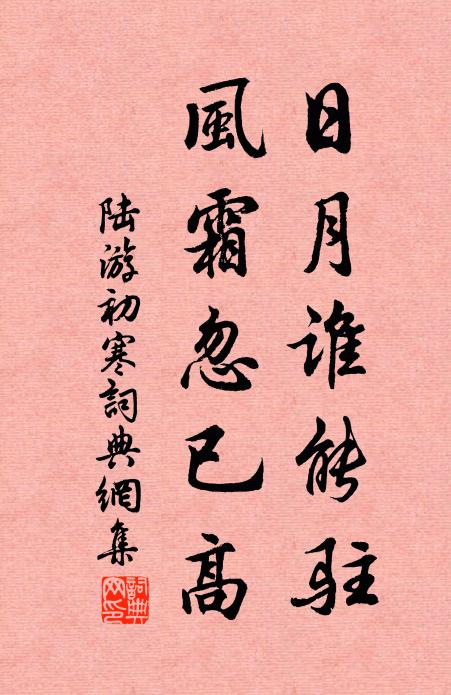 日月谁能駐
風霜忽已高
陆游初寒詞典網集
詞典网印